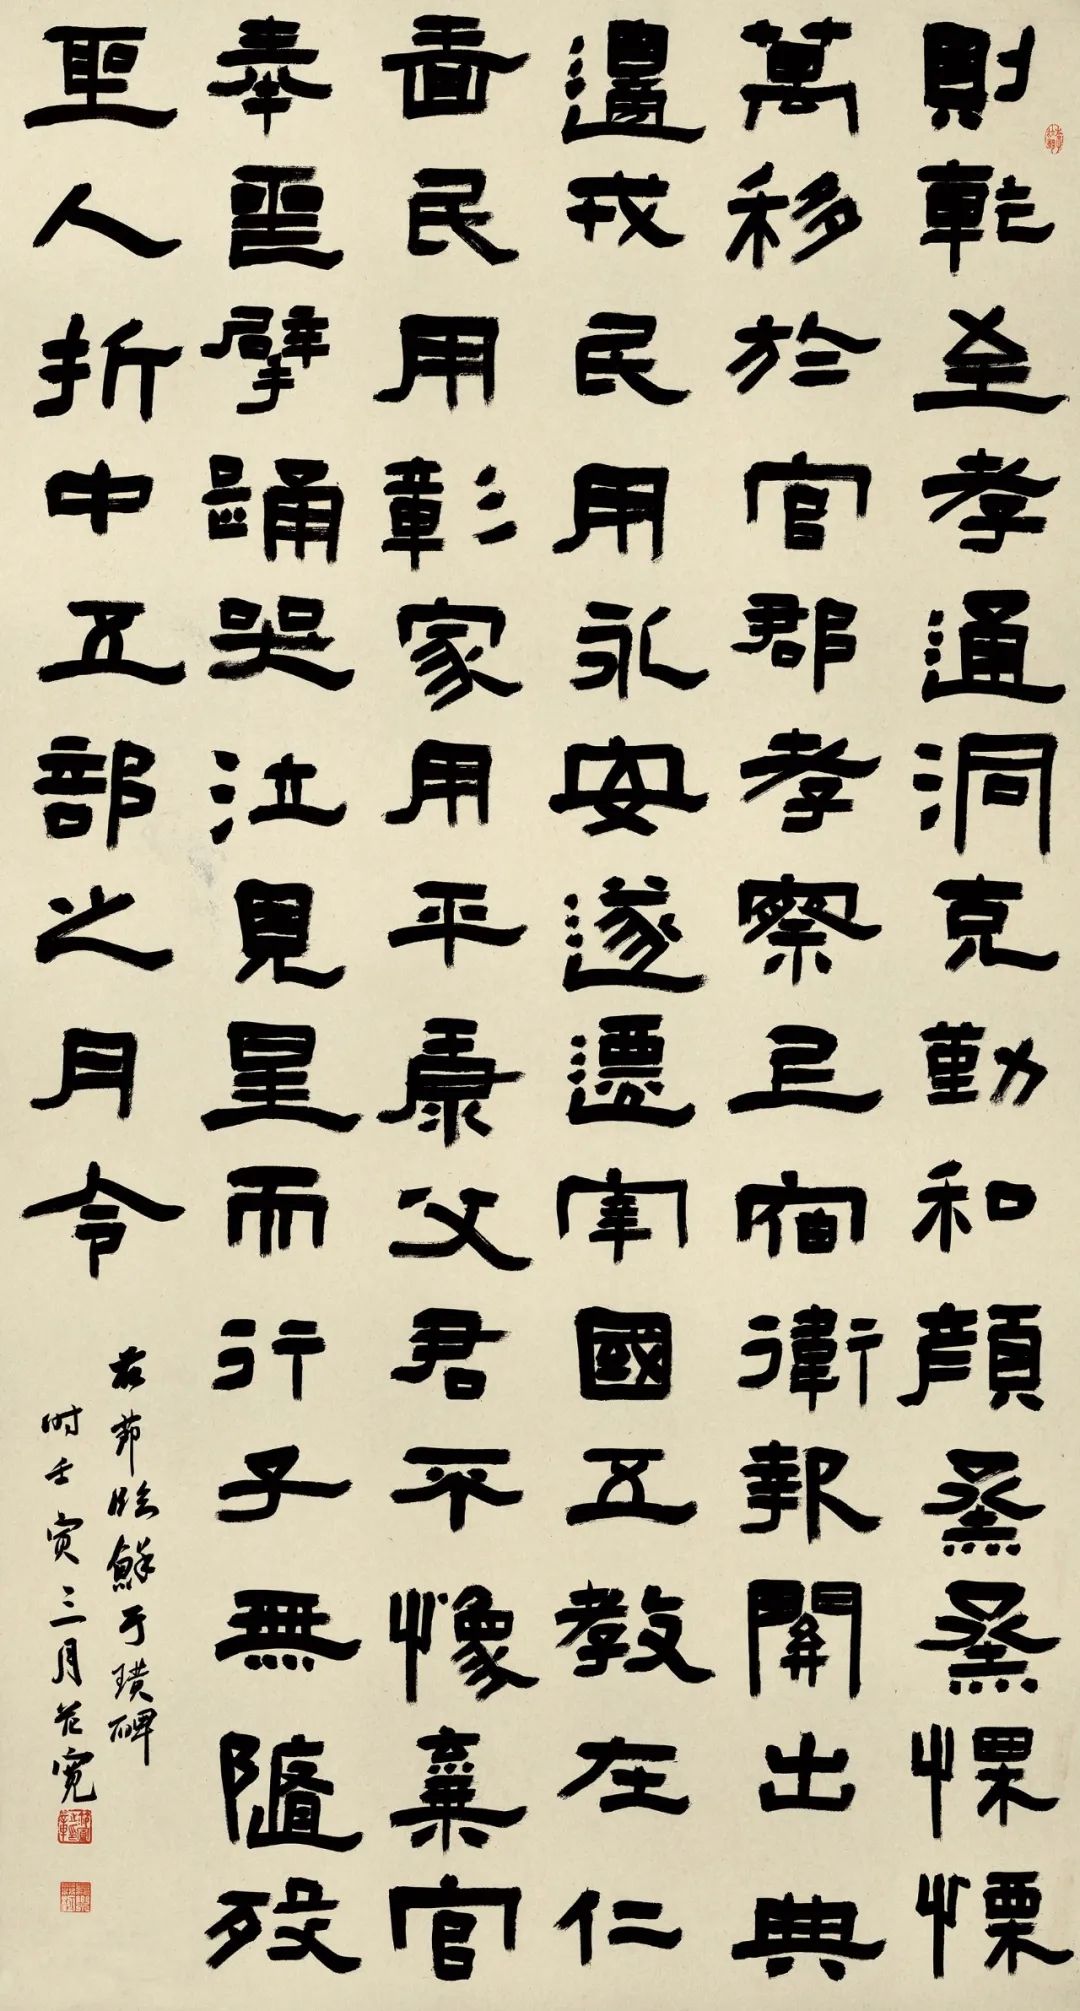 則乾至孝通洞克勤和顏烝烝慄慄
萬移於官郡孝察上宿衛報關出典
邊戎民用永安遂遷宰國五教在仁
嗇民用彰家用平康父君不棄官
奉喪擘踊哭泣見星而行子無隨歿
聖人折中五部之月令
右節臨鮮于璜碑
时壬寅三月宽